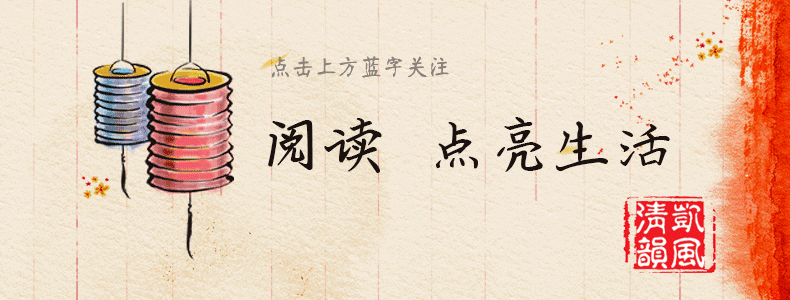 点击上方蓝字关注
阅读 点亮生活
凯風
清韻